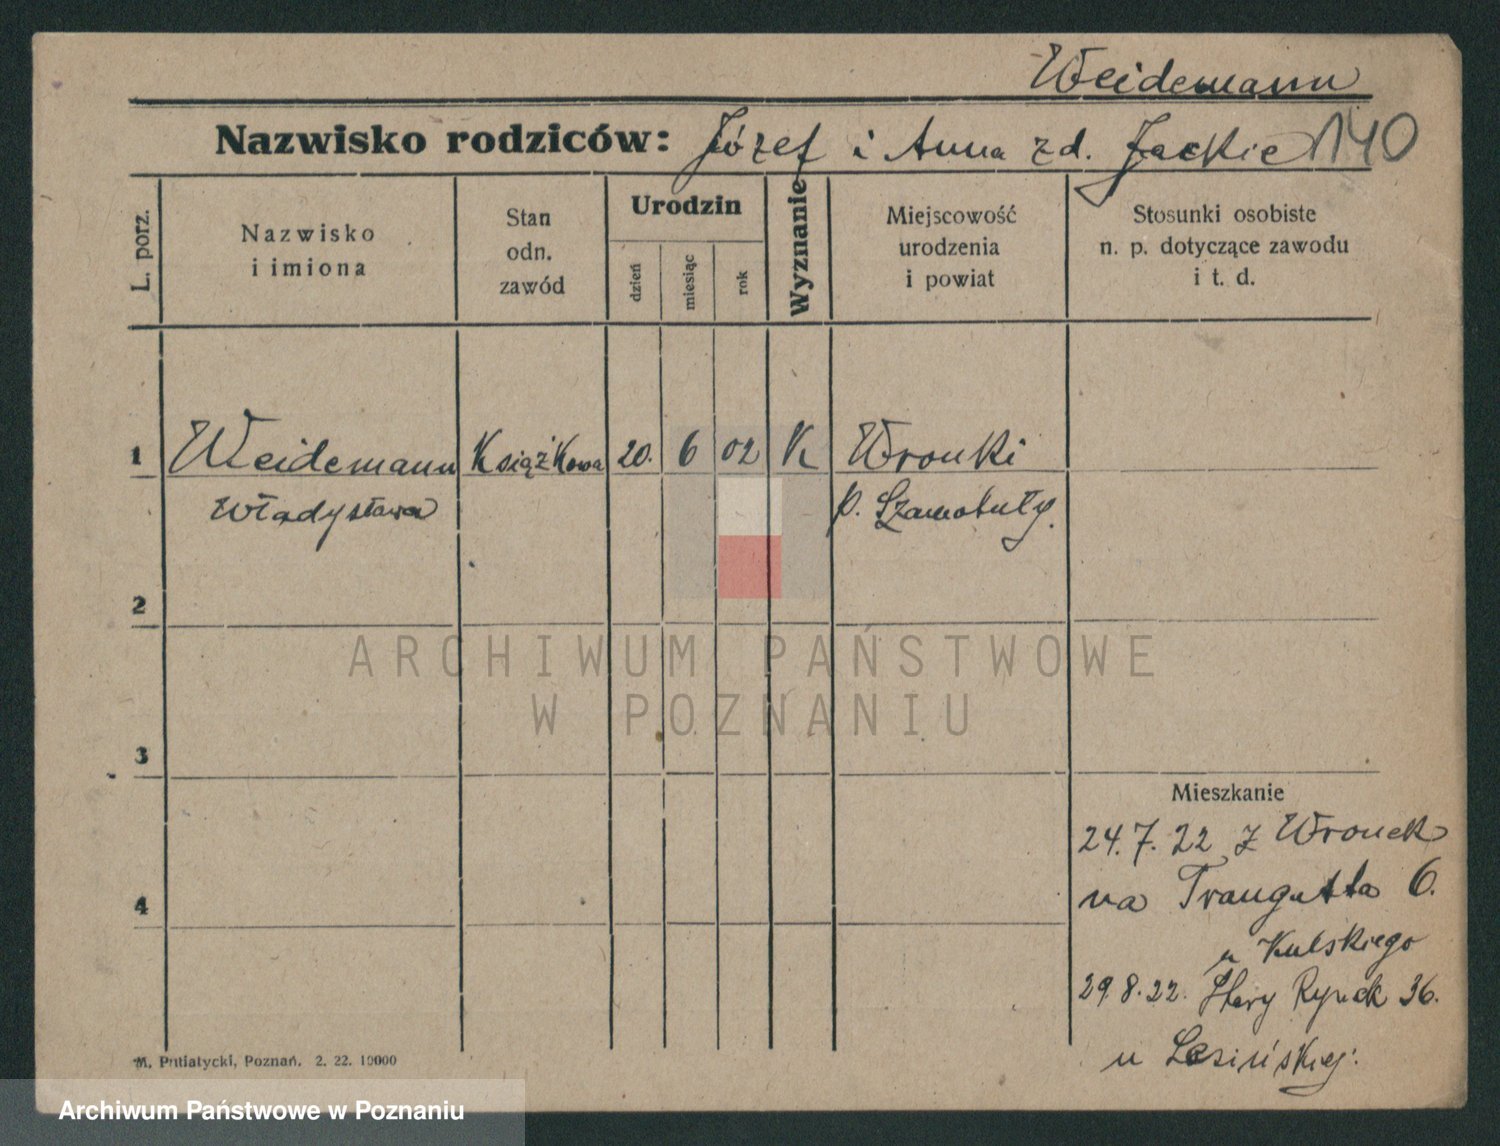 Weidemann
Nazwisko rodziców: Józef i Anna zd. Jackie 140
L. porz.
Nazwisko
i imiona
Stan
odn.
zawód
Urodzin
dzień
miesiąc
rok
Wyznanie
Miejscowość
urodzenia
i powiat
Stosunki osobiste
n. p. dotyczące zawodu
i t. d.
1 Weidemann Książkowa 20. 6 02 K Wronki
Władysława p. Szamotuły.
2
ARCHIWUM PAŃSTWOWE
W POZNANIU
3
Mieszkanie
24.7.22 z Wronek
4 na Traugutta 6.
u Kulskiego
29.8.22. Stary Rynek 36.
u Lesińskiej.
M. Putiatycki, Poznań. 2. 22. 10000
Archiwum Państwowe w Poznaniu